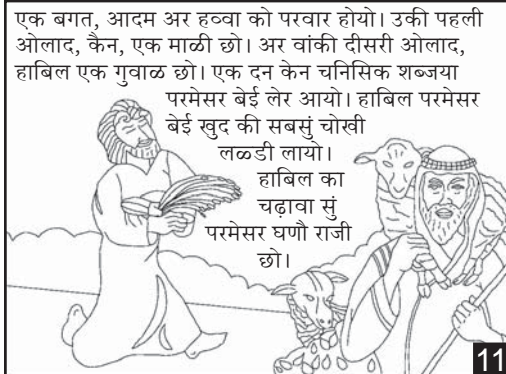 एक बगत, आदम अर हव्वा को परवार होयो। उकी पहली
ओलाद, कैन, एक माळी छो। अर वांकी दीसरी ओलाद,
हाबिल एक गुवाळ छो। एक दन केन चनिसिक शब्जया
परमेसर बेई लेर आयो। हाबिल परमेसर
बेई खुद की सबसुं चोखी
लळडी लायो।
हाबिल का
चढ़ावा सुं
परमेसर घणौ राजी
छो।
11